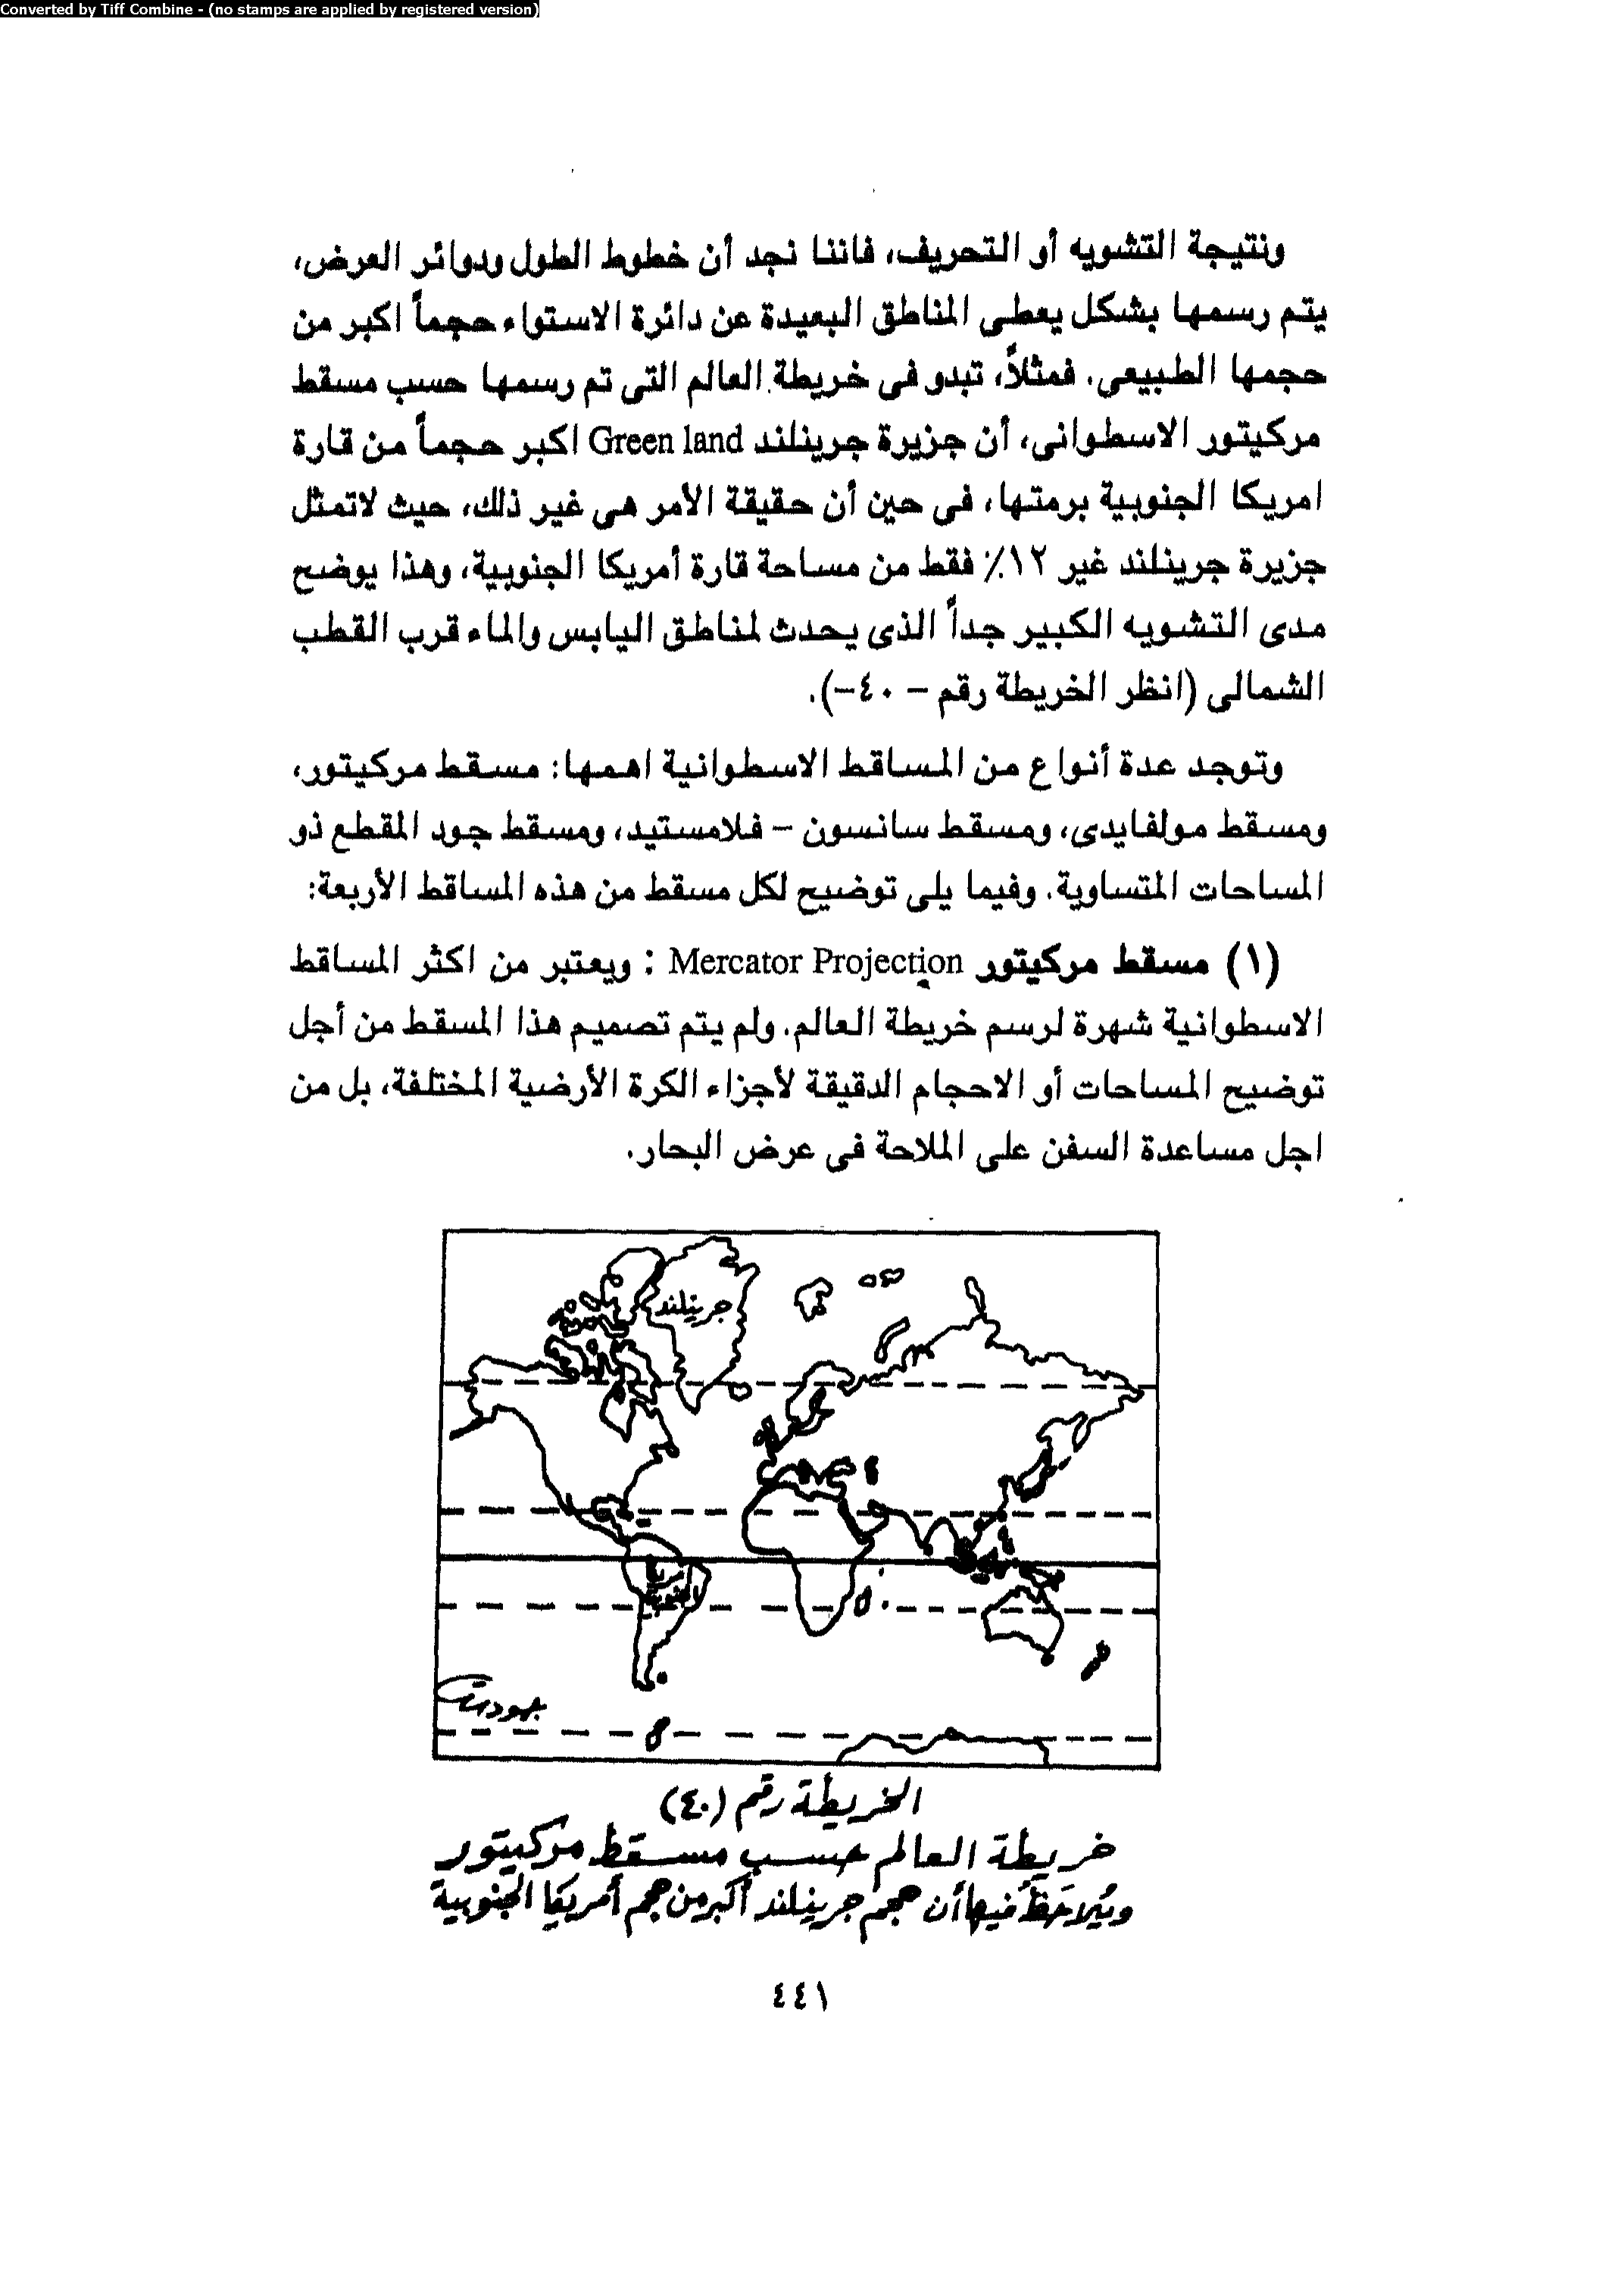 Converted by Tiff Combine - (no stamps are applied by registered version)
ونتيجة التشويه أو التحريف، فاننا نجد أن خطوط الطول ودوائر العرض،
يتم رسمها بشكل يعطى المناطق البعيدة عن دائرة الاستواء حجماً اكبر من
حجمها الطبيعى. فمثلاً، تبدو فى خريطة العالم التى تم رسمها حسب مسقط
مركيتور الاسطوانى، أن جزيرة جرينلند Green land اكبر حجماً من قارة
امريكا الجنوبية برمتها، فى حين أن حقيقة الأمر هى غير ذلك، حيث لاتمثل
جزيرة جرينلند غير ١٢٪ فقط من مساحة قارة أمريكا الجنوبية، وهذا يوضح
مدى التشويه الكبير جداً الذى يحدث لمناطق اليابس والماء قرب القطب
الشمالى (انظر الخريطة رقم - ٤٠-).
وتوجد عدة أنواع من المساقط الاسطوانية اهمها: مسقط مركيتور،
ومسقط مولفايدى، ومسقط سانسون - فلامستيد، ومسقط جود المقطع ذو
المساحات المتساوية. وفيما يلى توضيح لكل مسقط من هذه المساقط الأربعة:
(١) مسقط مركيتور Mercator Projection : ويعتبر من اكثر المساقط
الاسطوانية شهرة لرسم خريطة العالم. ولم يتم تصميم هذا المسقط من أجل
توضيح المساحات أو الاحجام الدقيقة لأجزاء الكرة الأرضية المختلفة، بل من
اجل مساعدة السفن على الملاحة فى عرض البحار.
جرينلند
أمريكا
الجنوبية
الخريطة رقم (٤٠)
خريطة العالم حسب مسقط مركيتور
ويُلاحَظ فيها أن حجم جرينلند أكبر من حجم أمريكا الجنوبية
٤٤١